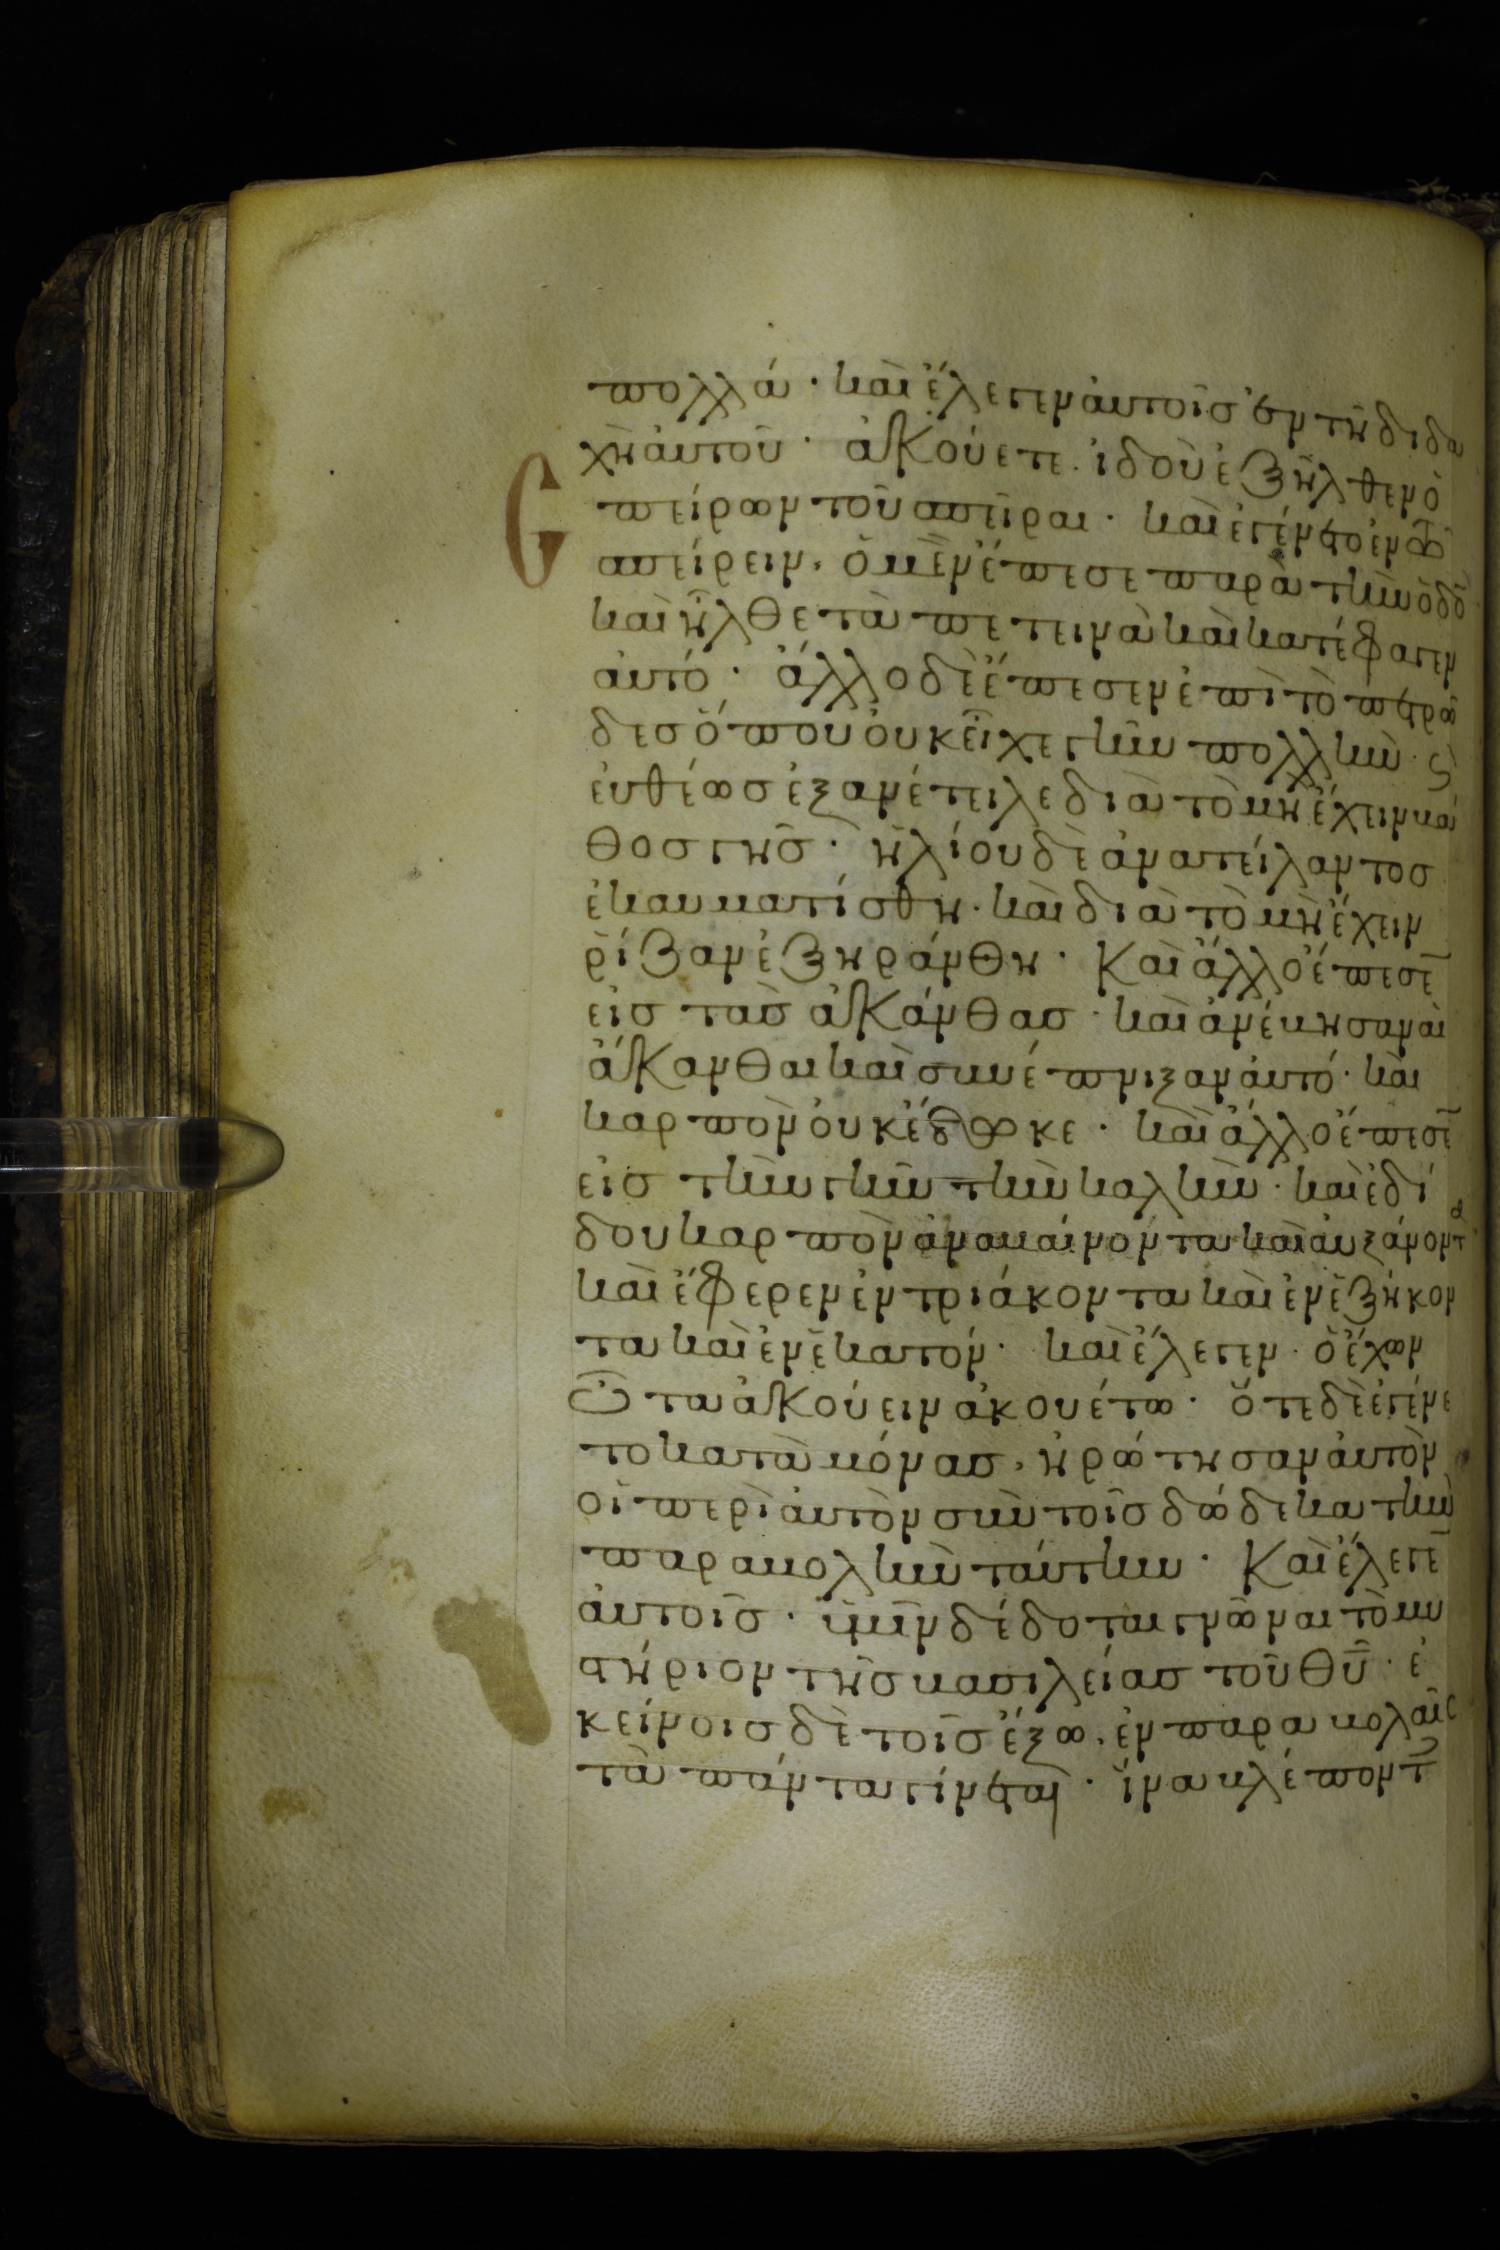 πολλά · καὶ ἔλεγεν αὐτοῖς ἐν τῆ διδα
χῆ αὐτοῦ · ἀκούετε · ἰδοὺ ἐξῆλθεν ὁ
σπείρων τοῦ σπεῖραι · καὶ ἐγένετο ἐν τῶ
σπείρειν, ὃ μὲν ἔπεσε παρὰ τὴν ὁδὸ
καὶ ἦλθε τὰ πετεινὰ καὶ κατέφαγεν
αὐτό · ἄλλο δὲ ἔπεσεν ἐπὶ τὸ πετρῶ
δες ὅπου οὐκ εἶχε γῆν πολλήν · ϛ
εὐθέως ἐξανέτειλε διὰ τὸ μὴ ἔχειν βά
θος γῆς · ἡλίου δὲ ἀνατείλαντος
ἐκαυματίσθη · καὶ διὰ τὸ μὴ ἔχειν
ῥίζαν ἐξηράνθη · Καὶ ἄλλο ἔπεσε̄
εἰς τὰς ἀκάνθας · καὶ ἀνέβησαν αἱ
ἄκανθαι καὶ συνέπνιξαν αὐτό · καὶ
καρπὸν οὐκ ἔδωκε · καὶ ἄλλο ἔπεσε̄
εἰς τὴν γῆν τὴν καλήν · καὶ ἐδί
δου καρπὸν ἀναβαίνοντα καὶ αὐξάνοντα
καὶ ἔφερεν ἐν τριάκοντα καὶ ἐν ἑξήκον
τα καὶ ἐν ἑκατόν · καὶ ἔλεγεν · ὁ ἔχων
ὦτα ἀκούειν ἀκουέτω · ὅτε δὲ ἐγένε
το καταμόνας, ἠρώτησαν αὐτὸν
οἱ περὶ αὐτὸν σὺν τοῖς δώδεκα τὴν
παραβολὴν ταύτην · Καὶ ἔλεγε̄
αὐτοῖς · ὑμῖν δέδοται γνῶναι τὸ μυ
στήριον τῆς βασιλείας τοῦ θῦ · ἐ
κείνοις δὲ τοῖς ἔξω, ἐν παραβολαῖς
τὰ πάντα γίνεται · ἵνα βλέποντ